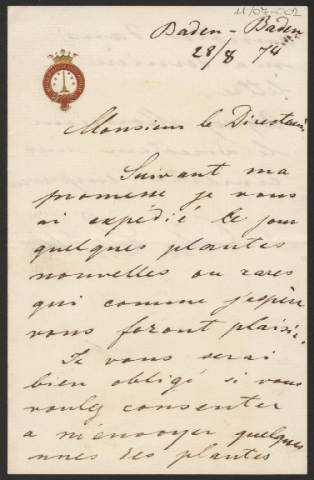 11/07-002
Baden-Baden
28/8 74
Monsieur le Directeur,
Suivant ma
promesse je vous
ai expédié ce jour
quelques plantes
nouvelles ou rares
qui comme j'espère
vous feront plaisir.
Je vous serai
bien obligé si vous
voulez consenter
a m'envoyer quelques
unes des plantes